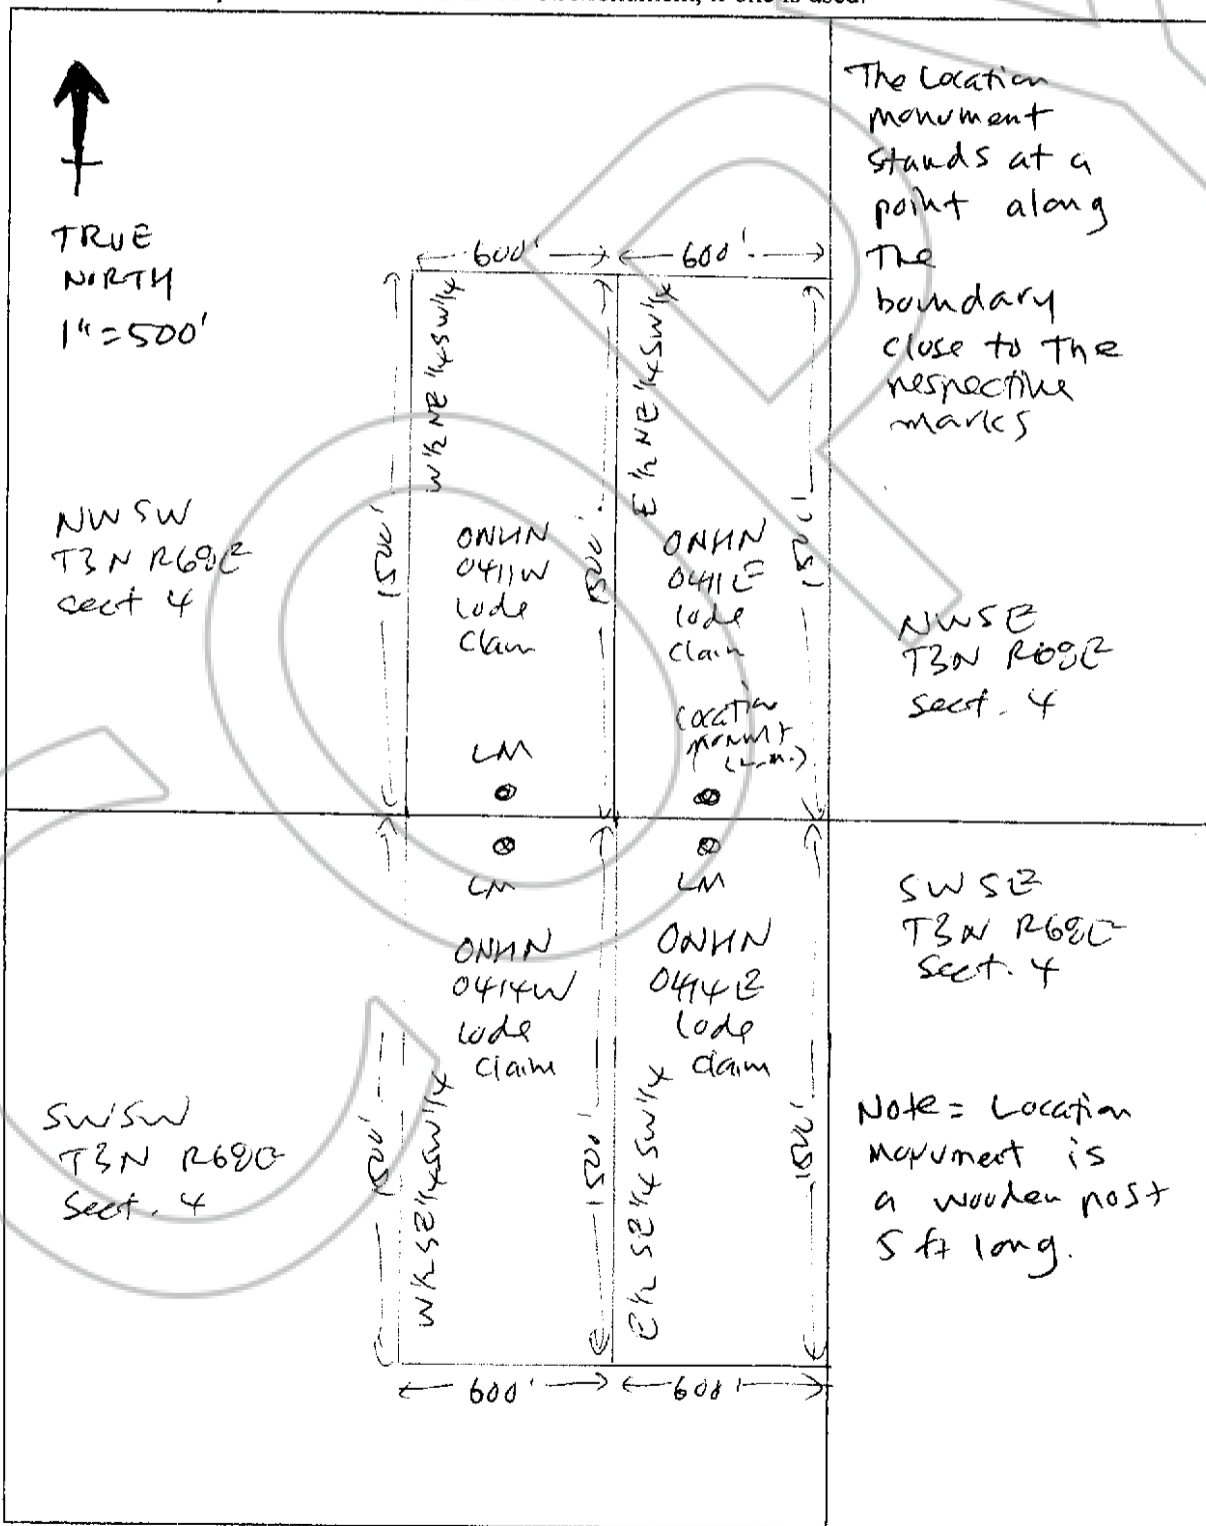 monument, if one is used.
TRUE
NORTH
1"=500'
The Location
monument
stands at a
point along
The
boundary
close to the
respective
marks
600'
600'
W½ NE¼SW¼
E½ NE¼SW¼
1500'
1500'
1500'
NWSW
T3N R68E
sect 4
ONHN
0411W
lode
claim
ONHN
0411E
lode
claim
NWSE
T3N R68E
sect. 4
LM
Location
monumt
(L.M.)
LM
LM
ONHN
0414W
lode
claim
ONHN
0414E
lode
claim
SWSE
T3N R68E
Sect. 4
SWSW
T3N R68E
Sect. 4
1500'
1500'
1500'
W½ SE¼SW¼
E½ SE¼ SW¼
Note = Location
monument is
a wooden post
5 ft long.
600'
600'
COPY